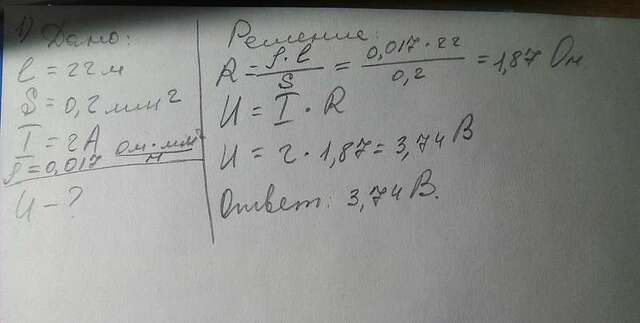 1) Дано:
l = 22 м
S = 0,2 мм²
I = 2А
ρ = 0,017 Ом·мм²/м
U - ?
Решение:
R = ρ·l/S = 0,017·22/0,2 = 1,87 Ом
U = I · R
U = 2 · 1,87 = 3,74 В
Ответ: 3,74 В.